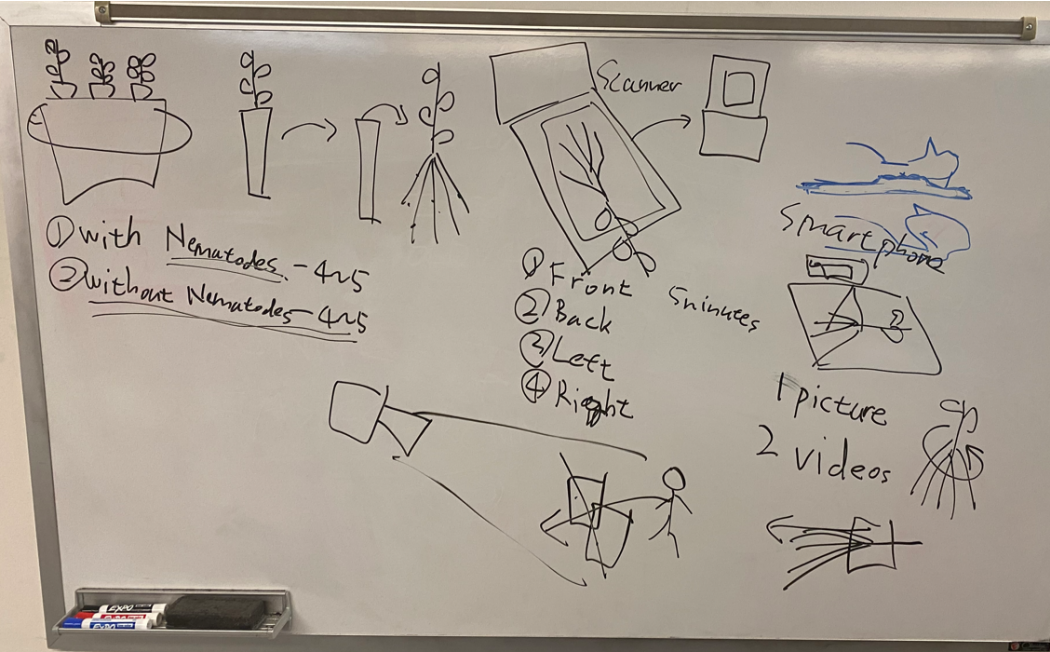 ① with Nematodes - 4~5
② without Nematodes - 4~5
Scanner
① Front
② Back
③ Left
④ Right
5 ninutes
Smartphone
1 picture
2 videos
EXPO
EXPO